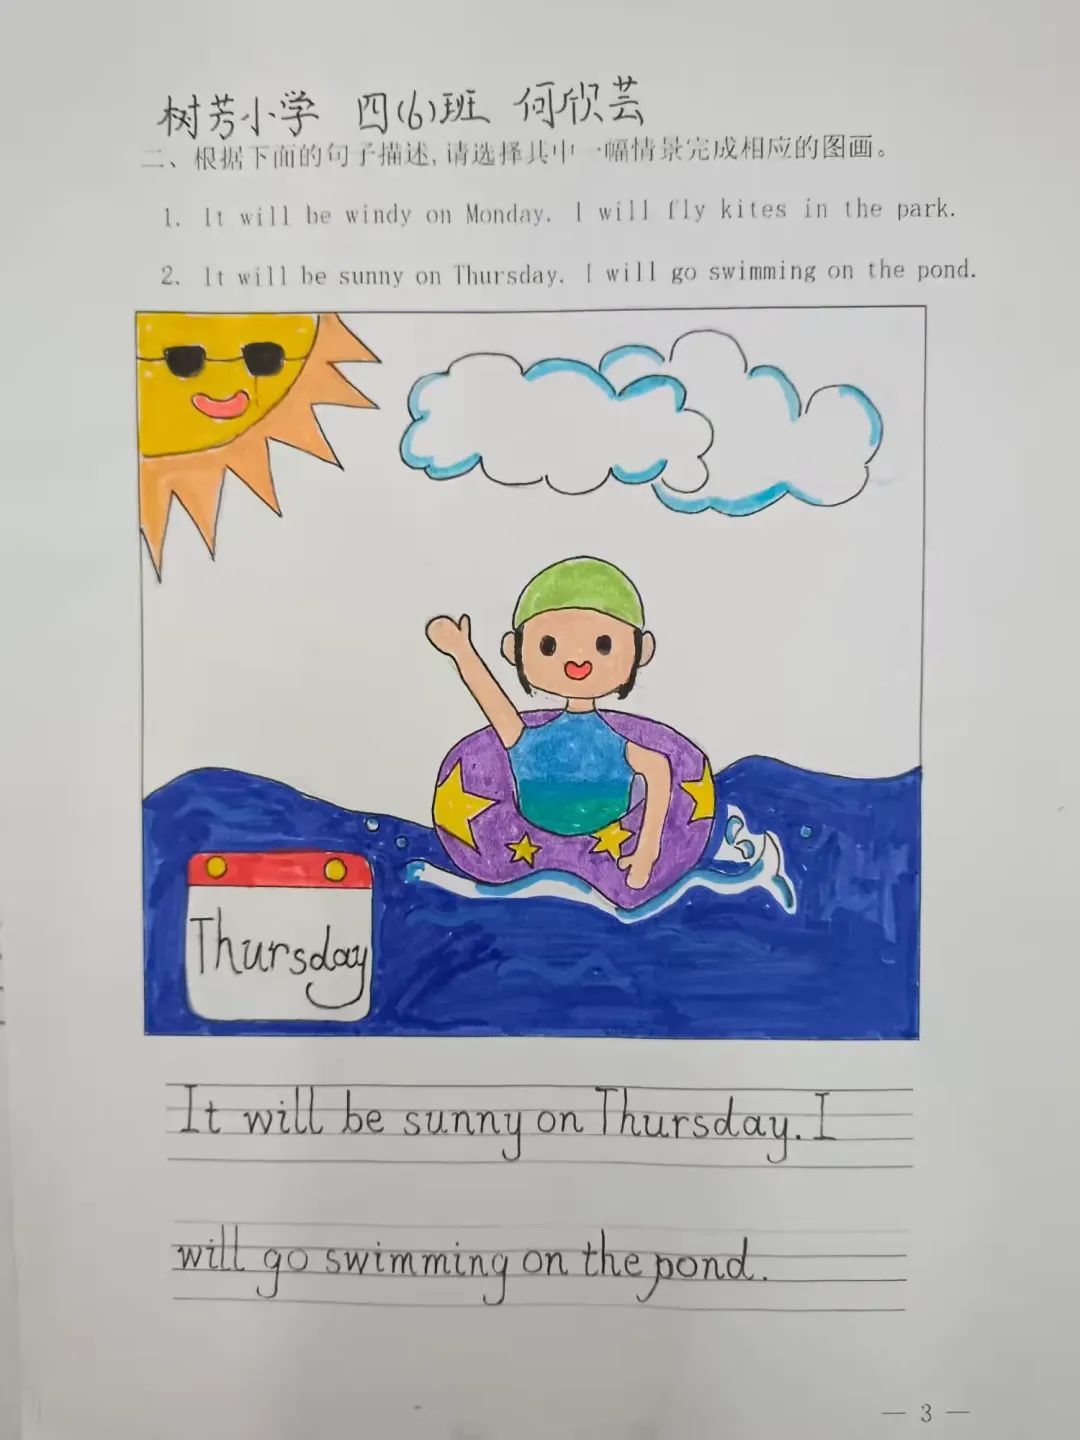 树芳小学 四(6)班 何欣芸
二、根据下面的句子描述,请选择其中一幅情景完成相应的图画。
1. It will be windy on Monday. I will fly kites in the park.
2. It will be sunny on Thursday. I will go swimming on the pond.
Thursday
It will be sunny on Thursday. I
will go swimming on the pond.
— 3 —